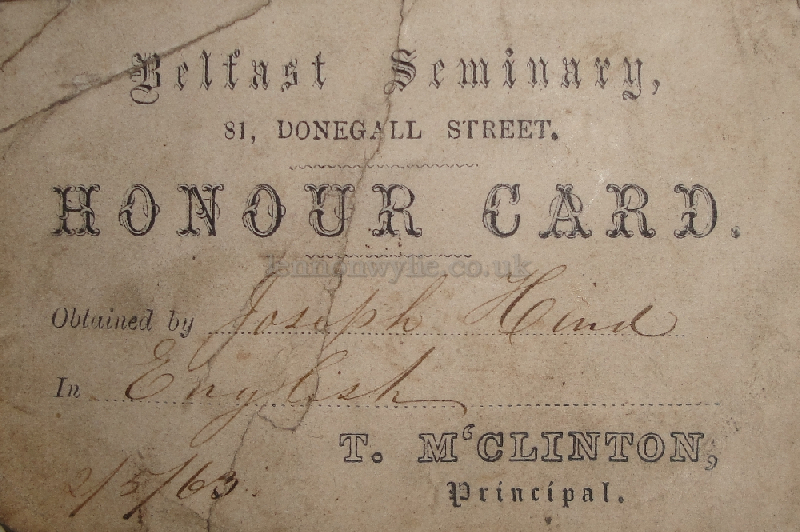 Belfast Seminary,
81, DONEGALL STREET.
HONOUR CARD.
lennonwylie.co.uk
Obtained by Joseph Hind
In English
T. M‘CLINTON,
2/5/63.
Principal.